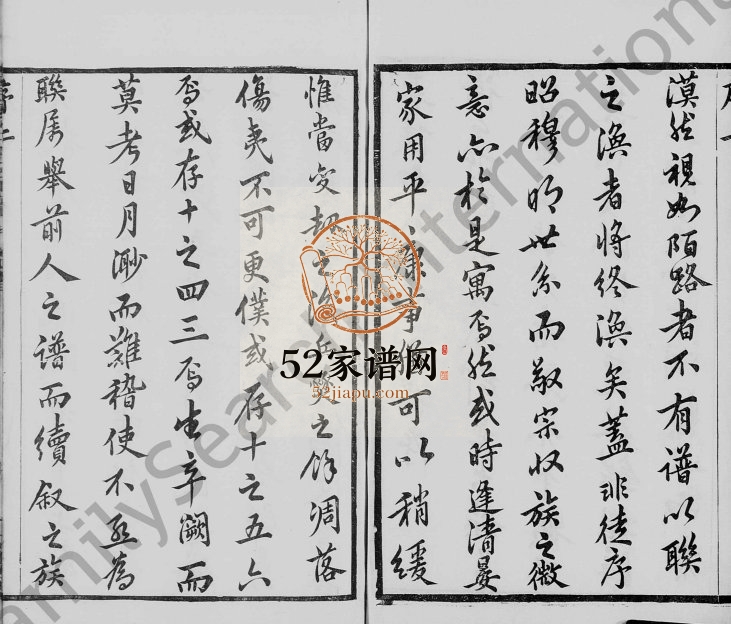 漠然視如陌路者不有譜以聯
之渙者將終渙矣蓋非徒序
昭穆明世系而敬宗收族之微
意亦於是寓焉然或時逢清晏
家用平康事猶可以稍緩
惟當變劫之後兵燹之餘凋落
傷夷不可更僕或存十之五六
焉或存十之四三焉生卒闕而
莫考日月渺而難稽使不亟為
聯屬舉前人之譜而續敘之族
52家谱网
52jiapu.com
FamilySearch International